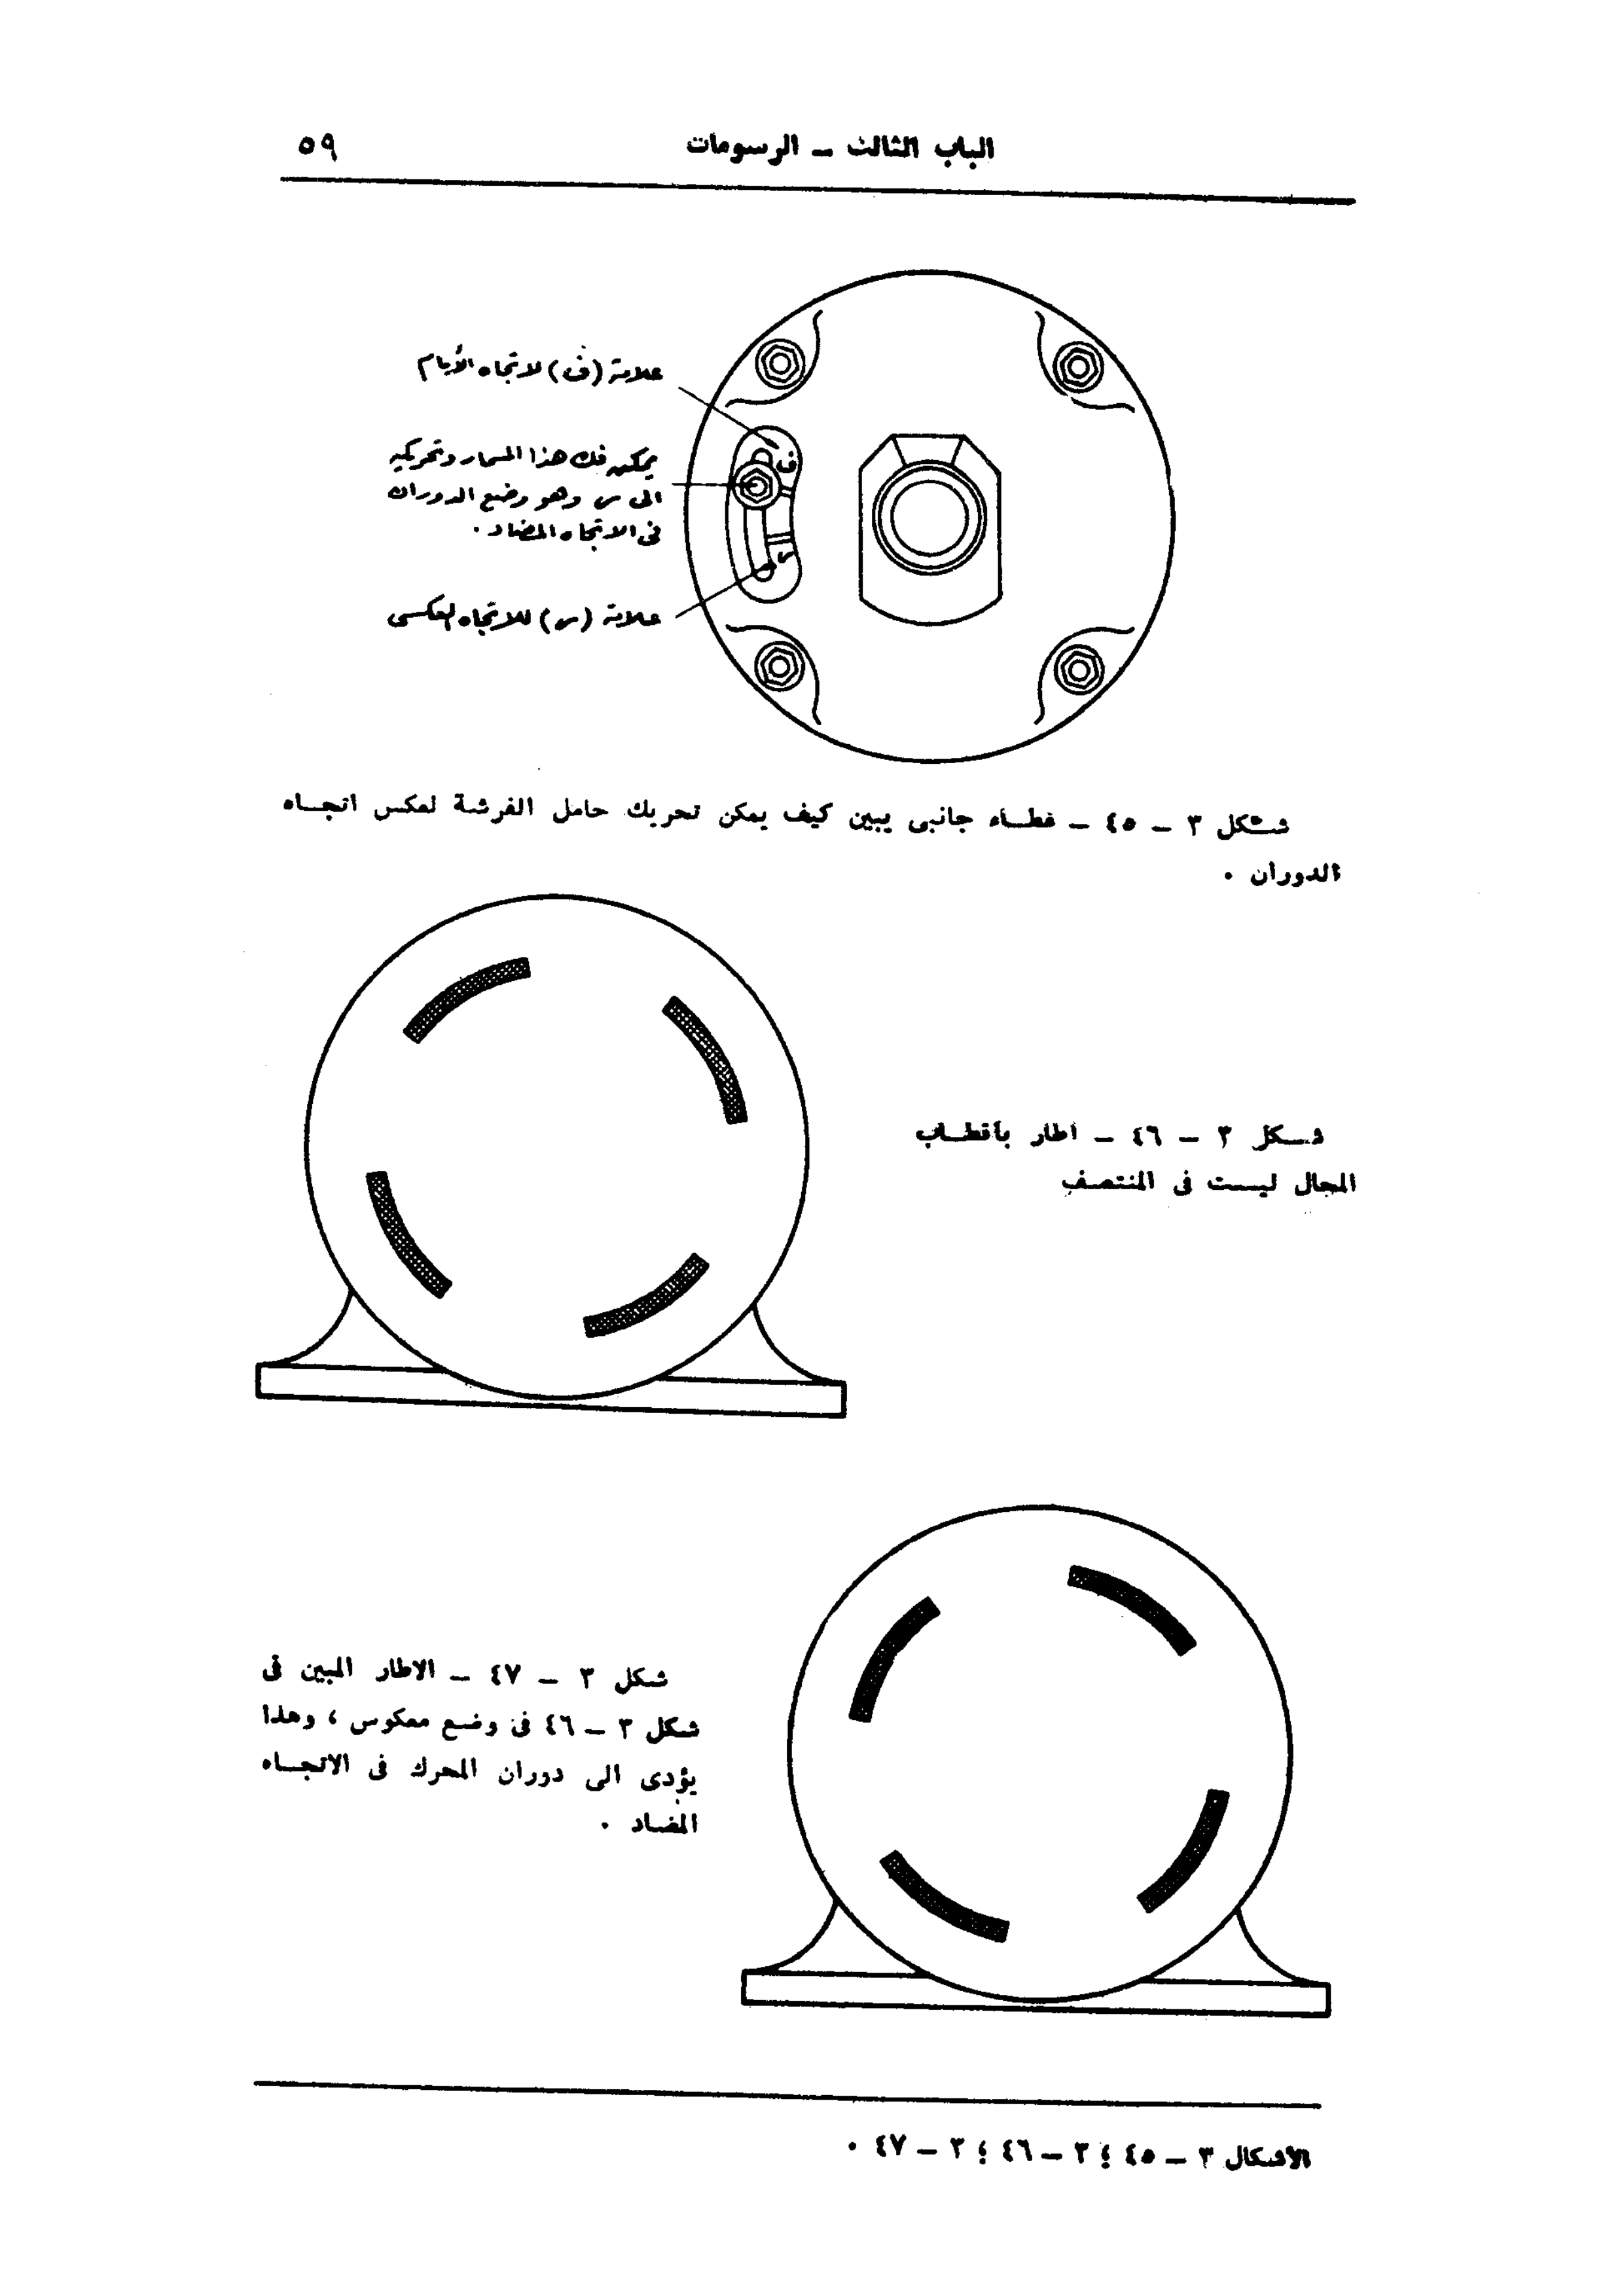 الباب الثالث – الرسومات ٥٩
علامة (ف) لاتجاه الأمام
يمكن فك هذا المسمار وتحريكه
الى س وهو وضع الدوران
فى الاتجاه المضاد .
علامة (س) للاتجاه العكسى
ف
س
شكل ٣ – ٤٥ – غطاء جانبى يبين كيف يمكن تحريك حامل الفرشة لعكس اتجاه
الدوران .
شكل ٣ – ٤٦ – اطار بأقطاب
المجال ليست فى المنتصف
شكل ٣ – ٤٧ – الاطار المبين فى
شكل ٣ – ٤٦ فى وضع معكوس ، وهذا
يؤدى الى دوران المحرك فى الاتجاه
المضاد .
الأشكال ٣ – ٤٥ ؛ ٣ – ٤٦ ؛ ٣ – ٤٧ .